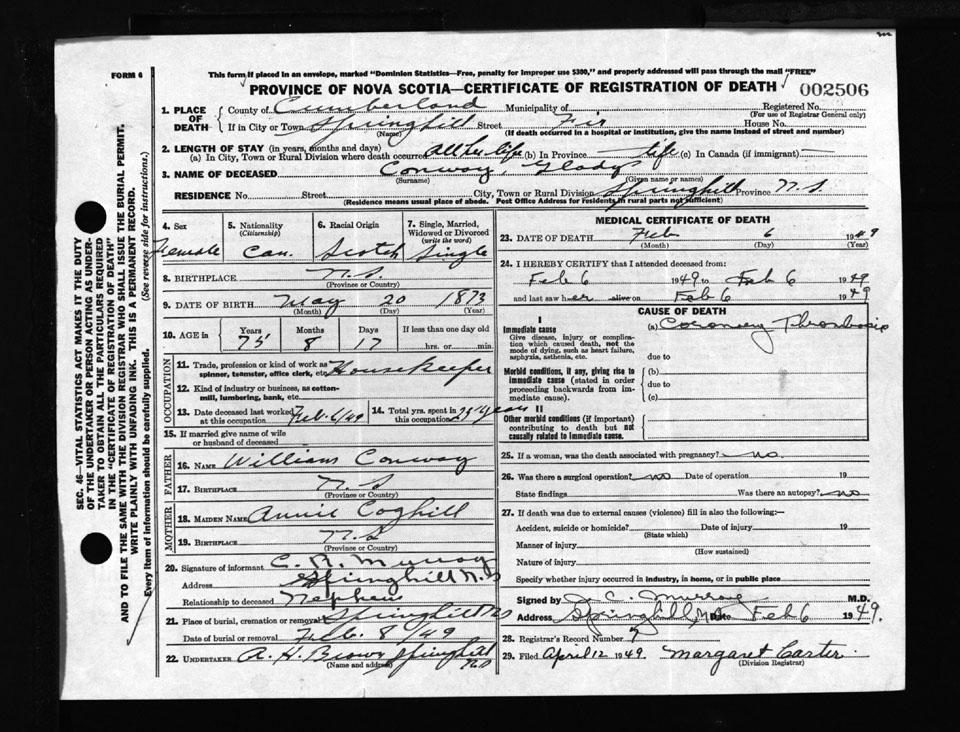 FORM 6
This form if placed in an envelope, marked "Dominion Statistics—Free, penalty for improper use $300," and properly addressed will pass through the mail "FREE"
PROVINCE OF NOVA SCOTIA—CERTIFICATE OF REGISTRATION OF DEATH 002506
1. PLACE OF DEATH { County of Cumberland Municipality of Registered No.
(For use of Registrar General only)
If in City or Town Springhill Street Fir House No.
(Name) (If death occurred in a hospital or institution, give the name instead of street and number)
2. LENGTH OF STAY (in years, months and days)
(a) In City, Town or Rural Division where death occurred All her life (b) In Province life (c) In Canada (if immigrant) —
3. NAME OF DECEASED Conway, Gladys
(Surname) (Given name or names)
RESIDENCE No. Street City, Town or Rural Division Springhill Province N.S.
(Residence means usual place of abode. Post Office Address for residents in rural parts not sufficient)
4. Sex Female
5. Nationality (Citizenship) Can.
6. Racial Origin Scotch
7. Single, Married, Widowed or Divorced (write the word) Single
8. BIRTHPLACE N.S.
(Province or Country)
9. DATE OF BIRTH May 20 1873
(Month) (Day) (Year)
10. AGE in { Years 75 Months 8 Days 17 If less than one day old
hrs. or min.
OCCUPATION
11. Trade, profession or kind of work as spinner, teamster, office clerk, etc. Housekeeper
12. Kind of industry or business, as cotton-mill, lumbering, bank, etc.
13. Date deceased last worked at this occupation Feb. 6/49
14. Total yrs. spent in this occupation 25 years
15. If married give name of wife or husband of deceased
FATHER
16. NAME William Conway
17. BIRTHPLACE N.S
(Province or Country)
MOTHER
18. MAIDEN NAME Annie Coghill
19. BIRTHPLACE N.S.
(Province or Country)
20. Signature of informant C. R. Murray
Address Springhill N.S
Relationship to deceased Nephew
21. Place of burial, cremation or removal Springhill NS
Date of burial or removal Feb. 8/49
22. UNDERTAKER A. H. Brown Springhill NS
(Name and address)
MEDICAL CERTIFICATE OF DEATH
23. DATE OF DEATH Feb 6 1949
(Month) (Day) (Year)
24. I HEREBY CERTIFY that I attended deceased from:
Feb 6 1949 to Feb 6 1949
and last saw her alive on Feb 6 1949
CAUSE OF DEATH
I
Immediate cause (a) Coronary Thrombosis
Give disease, injury or complication which caused death, not the mode of dying, such as heart failure, asphyxia, asthenia, etc. due to
Morbid conditions, if any, giving rise to immediate cause (stated in order proceeding backwards from immediate cause). (b)
due to
(c)
II
Other morbid conditions (if important) contributing to death but not causally related to immediate cause.
25. If a woman, was the death associated with pregnancy? no.
26. Was there a surgical operation? no Date of operation 19
State findings Was there an autopsy? no
27. If death was due to external causes (violence) fill in also the following:—
Accident, suicide or homicide? Date of injury 19
(State which)
Manner of injury
(How sustained)
Nature of injury
Specify whether injury occurred in industry, in home, or in public place
Signed by C. Murray M.D.
Address Springhill, NS Date Feb 6 1949.
28. Registrar's Record Number 7
29. Filed April 12 1949 Margaret Carter.
(Division Registrar)
SEC. 46—VITAL STATISTICS ACT MAKES IT THE DUTY
OF THE UNDERTAKER OR PERSON ACTING AS UNDERTAKER TO OBTAIN ALL THE PARTICULARS REQUIRED
IN THE "CERTIFICATE OF REGISTRATION OF DEATH"
AND TO FILE THE SAME WITH THE DIVISION REGISTRAR WHO SHALL ISSUE THE BURIAL PERMIT.
WRITE PLAINLY WITH UNFADING INK. THIS IS A PERMANENT RECORD.
Every item of information should be carefully supplied. (See reverse side for instructions.)